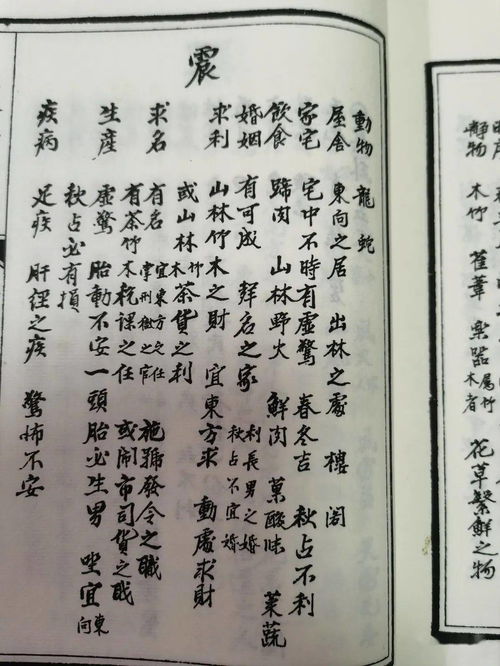 震
動物 龍 蛇
屋舍 東向之居 出林之處 樓閣
家宅 宅中不時有虛驚 春冬吉 秋占不利
飲食 蹄肉 山林野火 鮮肉 菓酸味 菜蔬
婚姻 有可成 聲名之家 利長男之婚 秋占不宜婚
求利 山林竹木之財 宜東方求 動處求財
或山林竹木茶貨之利
求名 有名 宜東方之任 掌刑獄之官 施號發令之職
有茶竹木稅課之任 或鬧市司貨之職
生產 虛驚 胎動不安 頭胎必生男 坐宜東向
秋占必有損
疾病 足疾 肝經之疾 驚怖不安
靜物 木竹 萑葦 樂器 屬竹木者 花草繁鮮之物